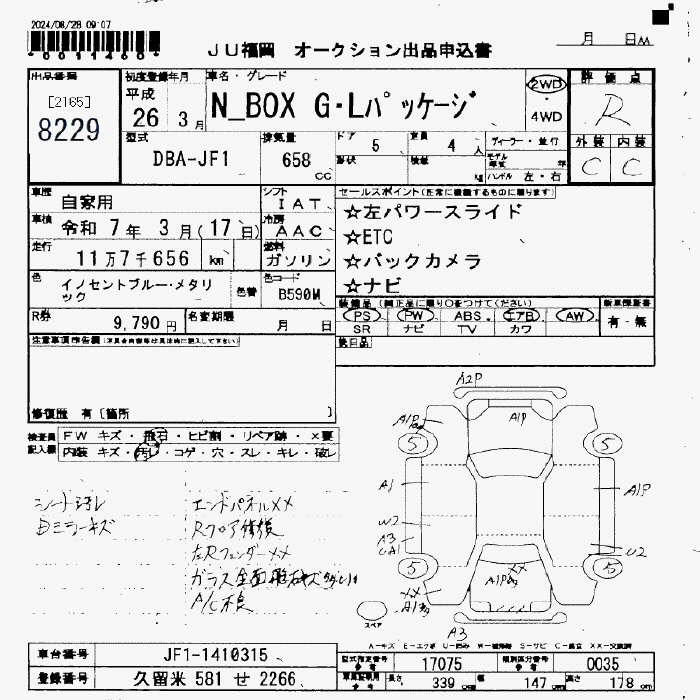 2024/08/28 09:07
*0011460*
JU福岡 オークション出品申込書
月 日
出品番号
[2165]
8229
初度登録年月
平成
26 3月
車名・グレード
N_BOX G・Lパッケージ
2WD
・
4WD
評価点
R
外装 内装
C C
型式
DBA-JF1
排気量
658
cc
ドア 5
形状
定員 4 人
積載 kg
ディーラー・並行
モデル年式 年
ハンドル 左・右
車歴
自家用
シフト
IAT
車検
令和 7年 3月(17日)
冷房
AAC
走行
11万7千656 km
燃料
ガソリン
セールスポイント(正常に機能するものに限ります)
☆左パワースライド
☆ETC
☆バックカメラ
☆ナビ
色
イノセントブルー・メタリック
色替
色コード
B590M
装備品(純正品に限り○をつけてください)
PS PW ABS エアB AW
SR ナビ TV カワ
新車保証書
有・無
R券
9,790 円
名変期限
月 日
後日品
注意事項申告欄
修復歴 有〔箇所 〕
検査員記入欄
FW キズ・飛石・ヒビ割・リペア跡・×要
内装 キズ・汚レ・コゲ・穴・スレ・キレ・破レ
シート汚レ
Dミラーキズ
エンドパネルXX
Rフロア修復
左RフェンダーXX
A/C不良
A2P
A1P
A1P
5
5
A1
A1P
W2
A3
U2
5
5
XX
XX
スペア
A3
A-キズ E-エクボ U-凹み W-補修跡 S-サビ C-腐食 XX-交換済
車台番号 JF1-1410315
登録番号 久留米 581 せ 2266
型式指定番号 17075
類別区分番号 0035
長さ 339 cm
幅 147 cm
高さ 178 cm